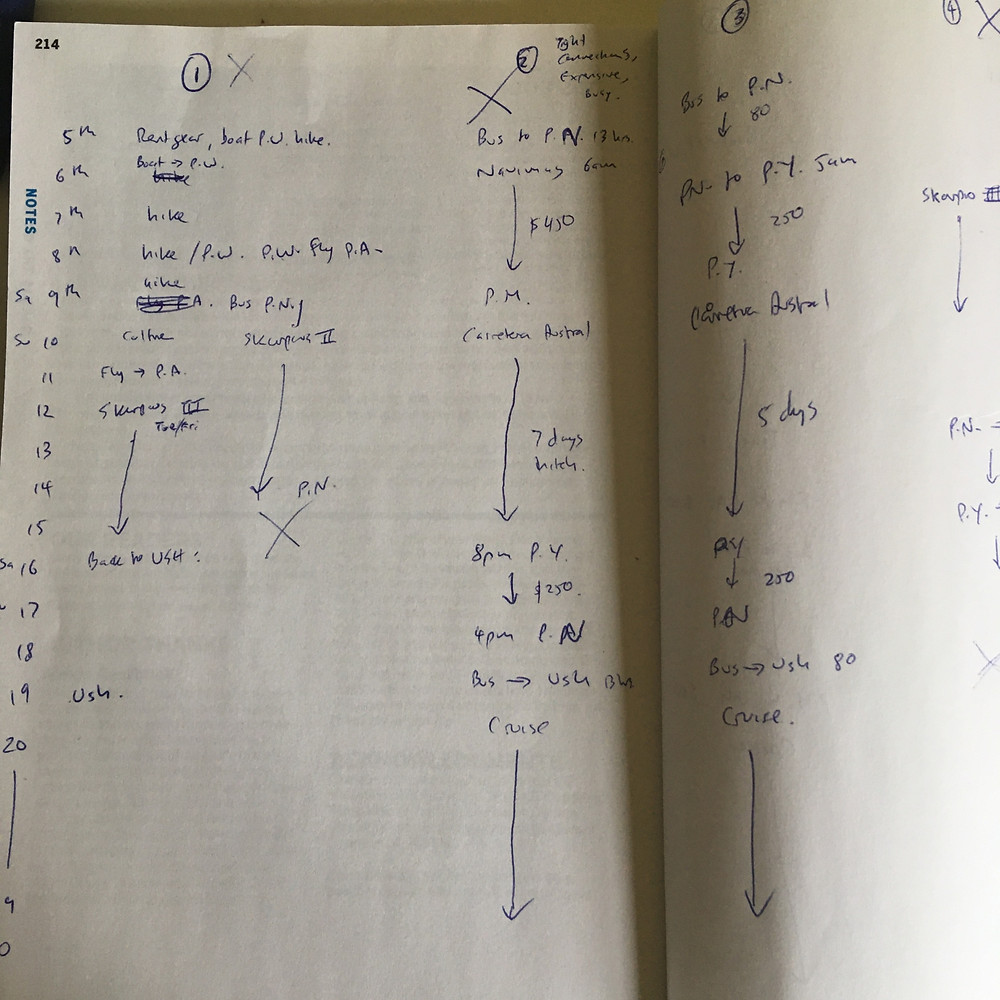 214
NOTES
1 X
5th Rent gear, boat P.W. hike.
6th Boat → P.W.
hike
7th hike
8th hike / P.W. P.W. fly P.A-
hike
Sa 9th A. Bus P.N.
Su 10 Culture Skorpios II
11 Fly → P.A.
12 Skorpios III
13
14 P.N.
15
Sa 16 Back to USH?
17
18
19 Ush.
20
9
0
2
Tight
Connections,
Expensive,
Busy.
Bus to P.N. 13 hrs.
Navimag 6am
$450
P.M.
Carretera Austral
7 days
hitch.
8pm P.Y.
$250.
4pm P.N
Bus → Ush 13hrs
Cruise
3
Bus to P.N.
80
P.N. to P.Y. 5am
250
P.Y.
Carretera Austral
5 dys
P.Y
250
P.N
Bus → Ush 80
Cruise.
4 X
Skorpio III
P.N. →
P.Y.